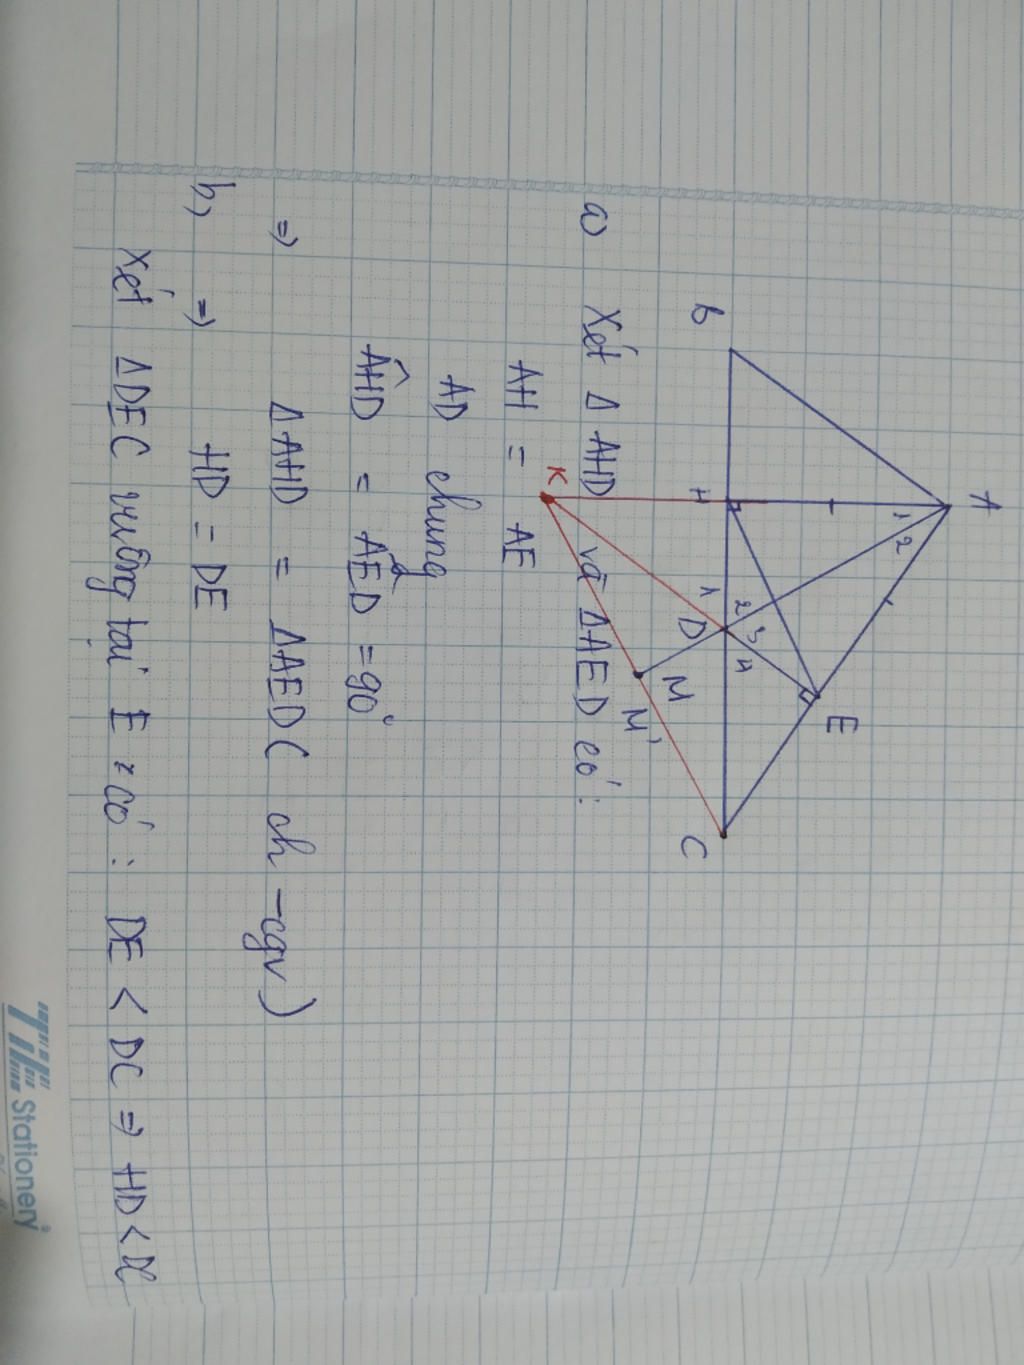 A
1 2
E
B
H
1 2 3 4
D
C
M
M'
K
a) Xét Δ AHD và ΔAED có:
AH = AE
AD chung
AHD = AED = 90°
⇒ ΔAHD = ΔAEDC ch - cgv)
b, ⇒ HD = DE
Xét ΔDEC vuông tại E có: DE < DC ⇒ HD < DC
TiTi Stationery